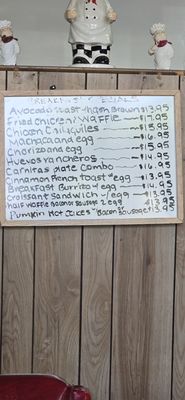 BREAKFAST SPECIALS
Avocado Toast w/Hash Brown $13.95
Fried Chicken/Waffle $17.95
Chicken Chiliquiles $15.95
Machaca and egg $16.95
Chorizo and egg $15.95
Huevos rancheros $14.95
Carnitas plate Combo $16.95
Cinnamon French Toast w/egg $13.95
Breakfast Burrito w/egg $14.95
Croissant Sandwich w/egg $13.95
half Waffle Bacon or Sausage 2 egg $13.95
Pumpkin Hot Cakes "Bacon or Sausage" $13.95